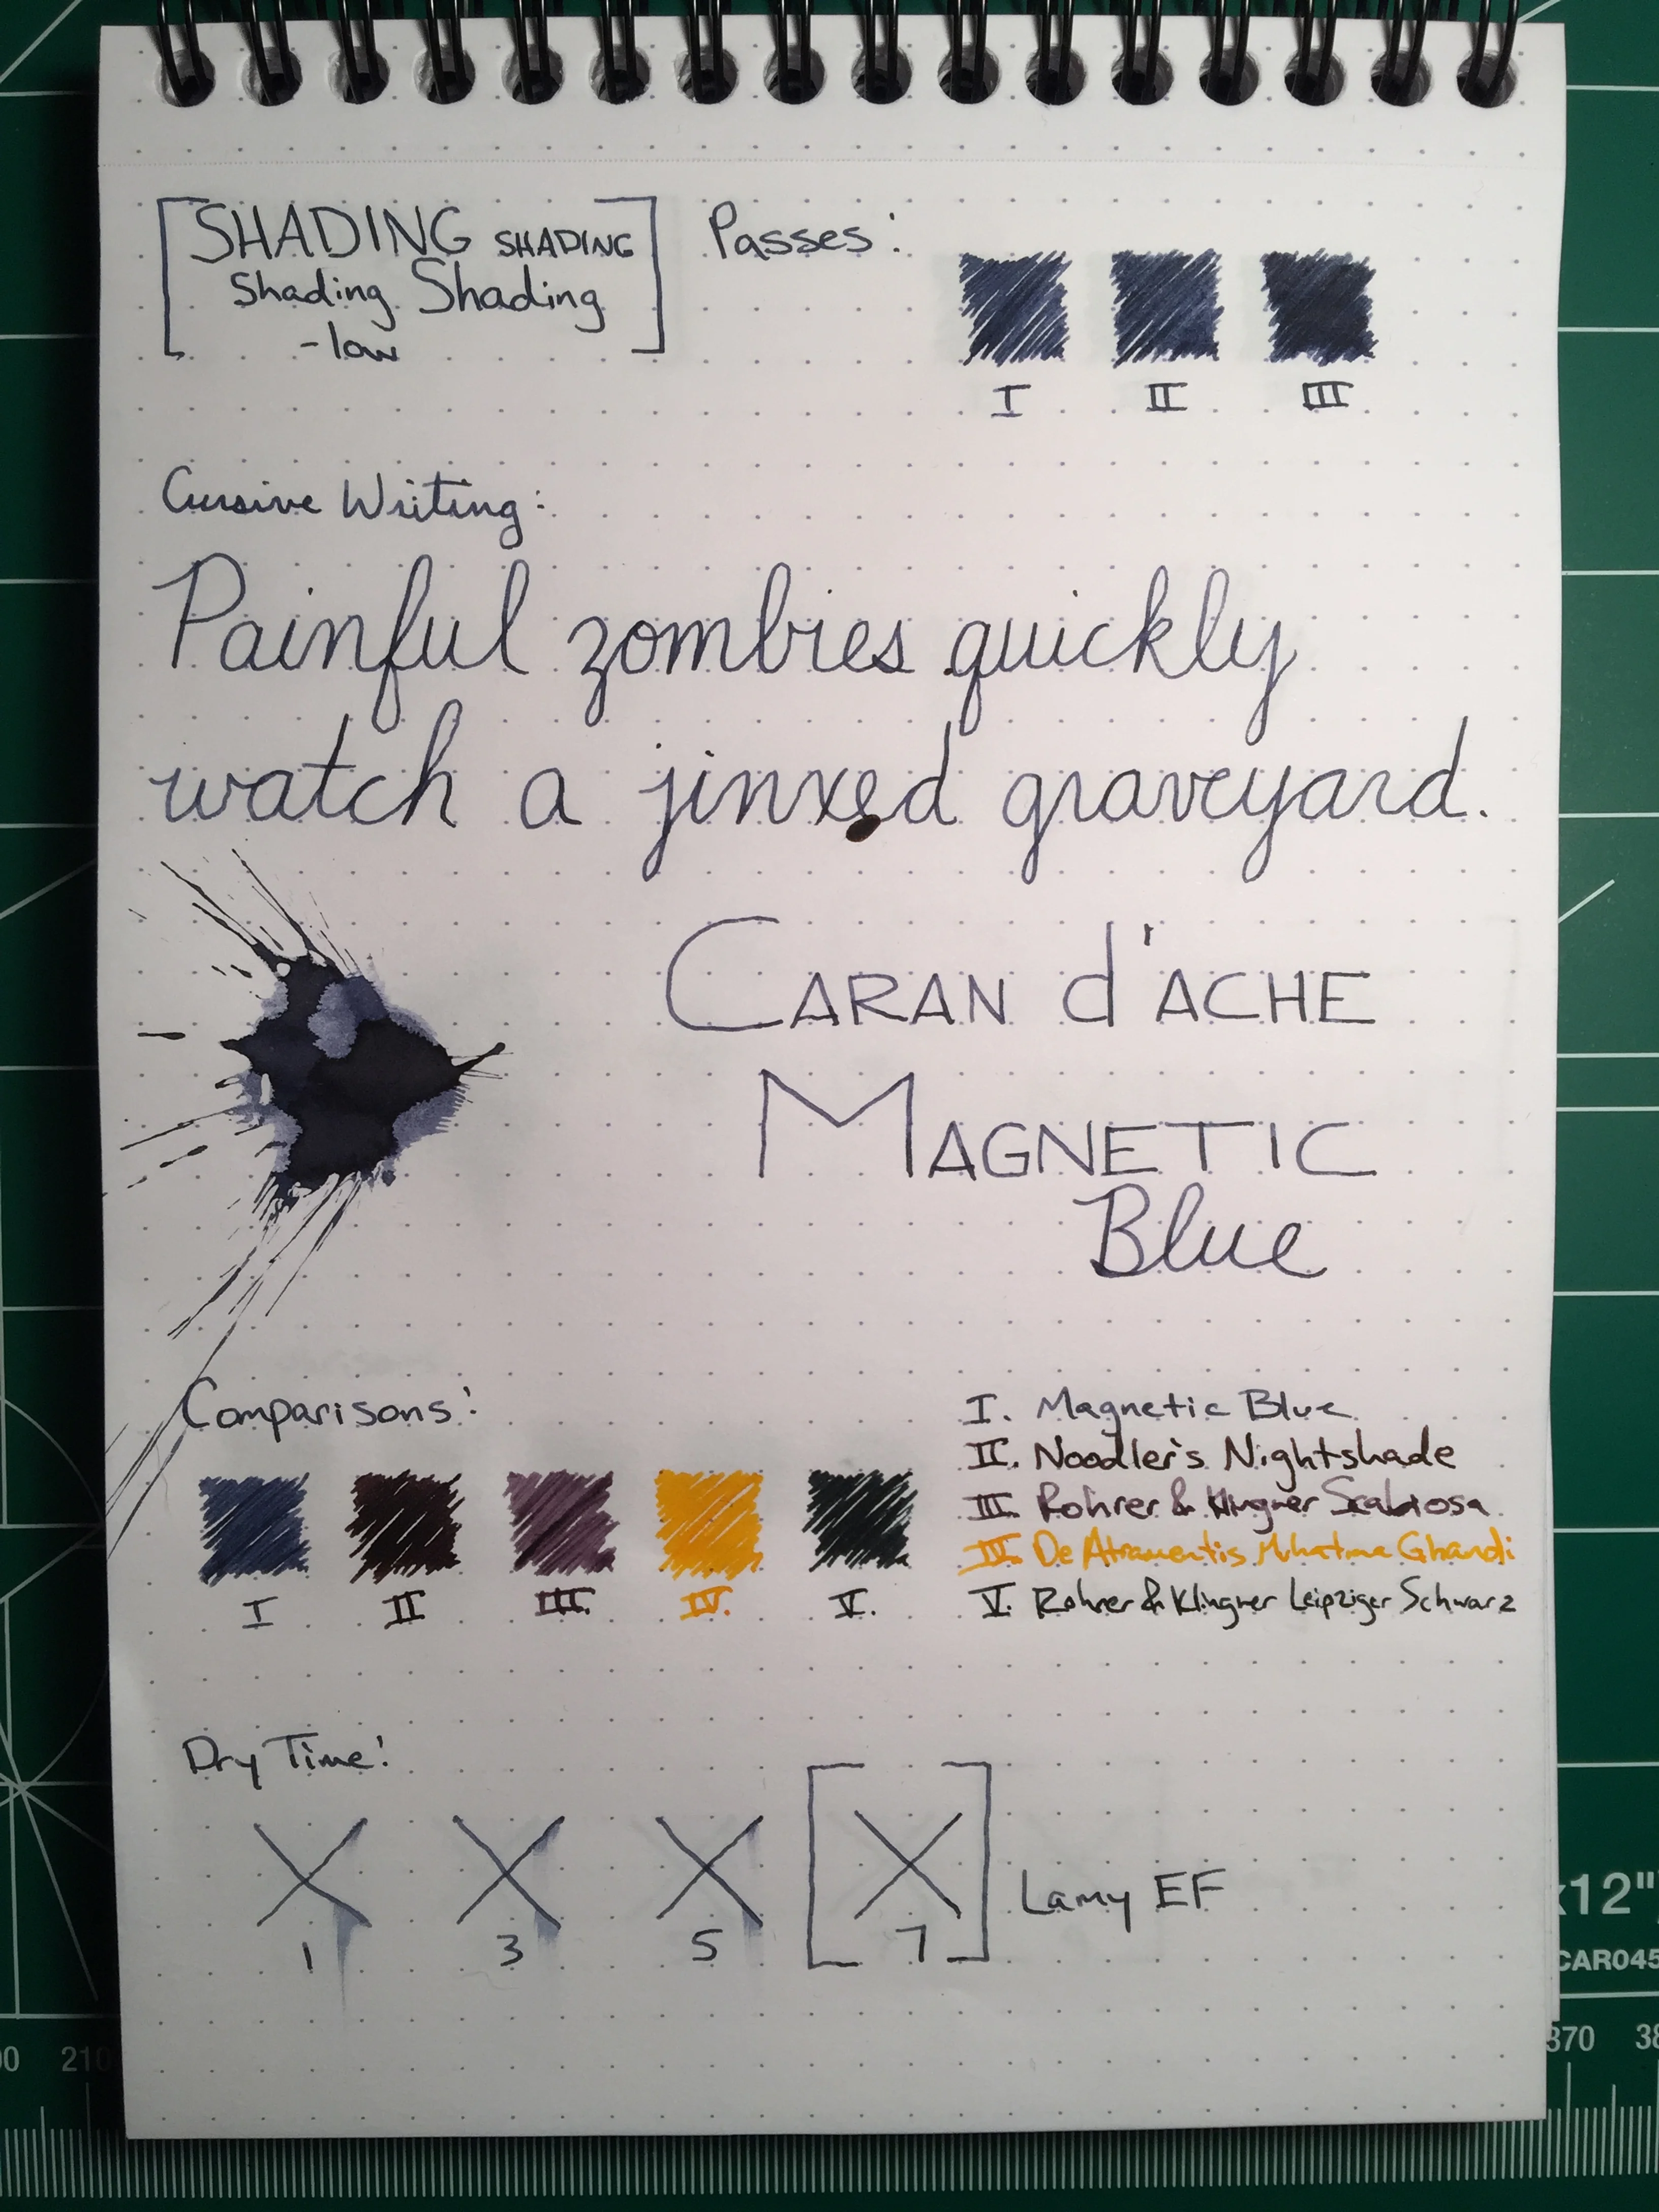 SHADING SHADING
Shading Shading
-low
Passes:
I II III
Cursive Writing:
Painful zombies quickly
watch a jinxed graveyard.
CARAN d'ACHE
MAGNETIC
Blue
Comparisons:
I II III. IV. V.
I. Magnetic Blue
II. Noodler's Nightshade
III. Rohrer & Klingner Scabiosa
III. De Atramentis Mhatma Ghandi
V. Rohrer & Klingner Leipziger Schwarz
Dry Time:
1 3 5 7
Lamy EF
x12"
CAR045
210
370